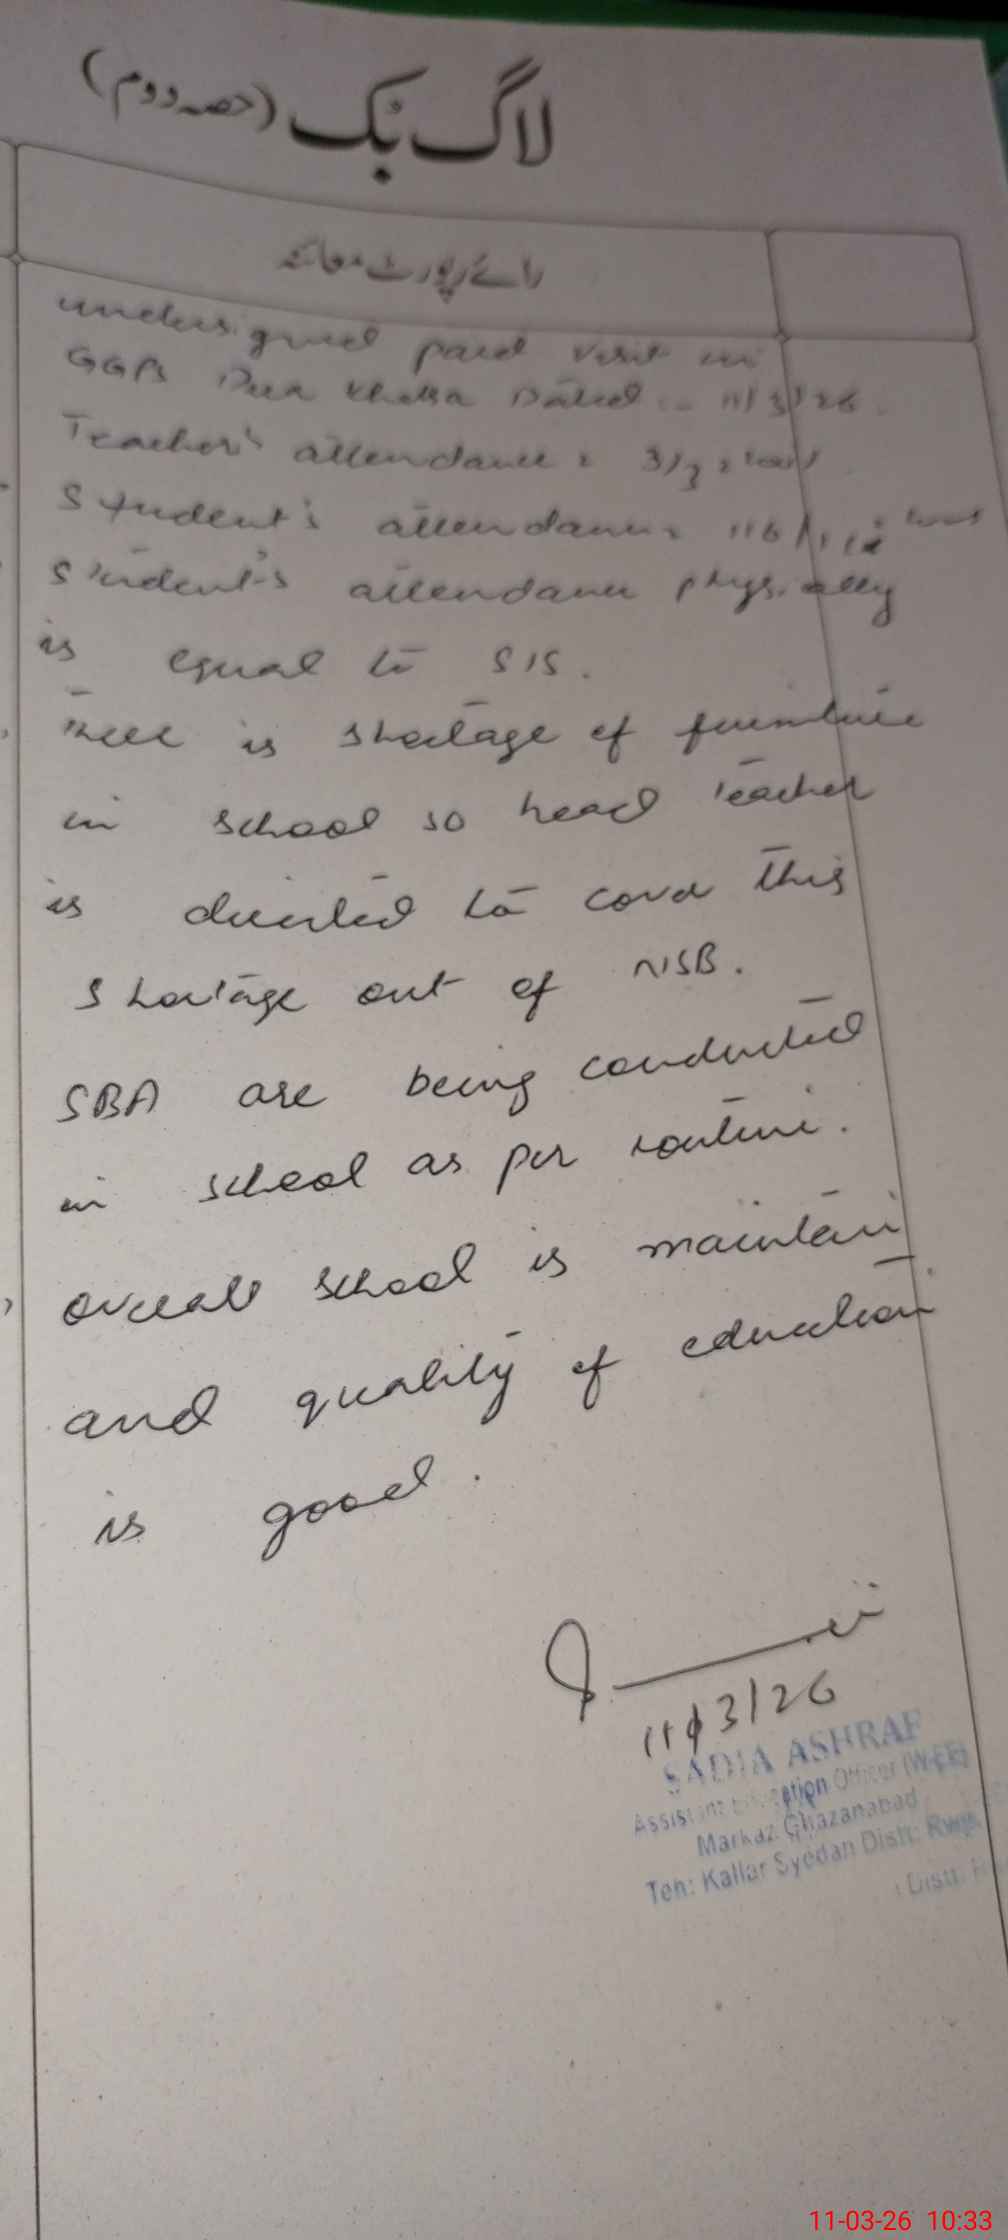 لاگ بک (حصہ دوم)
رائے رپورٹ معائنہ
undersigned paid visit in
GGPS Dera Khalsa Dated :- 11/3/26.
Teacher's attendance = 3/3
Student's attendance = 116/
Student's attendance physically
is equal to SIS.
There is shortage of furniture
in school so head teacher
is directed to cover this
shortage out of NSB.
SBA are being conducted
in school as per routine.
overall school is maintain
and quality of education
is good.
11/3/26
SADIA ASHRAF
Assistant Education Officer (W-EE)
Markaz Ghazanabad
Teh: Kallar Syedan Distt: Rwp.
Distt:
11-03-26 10:33